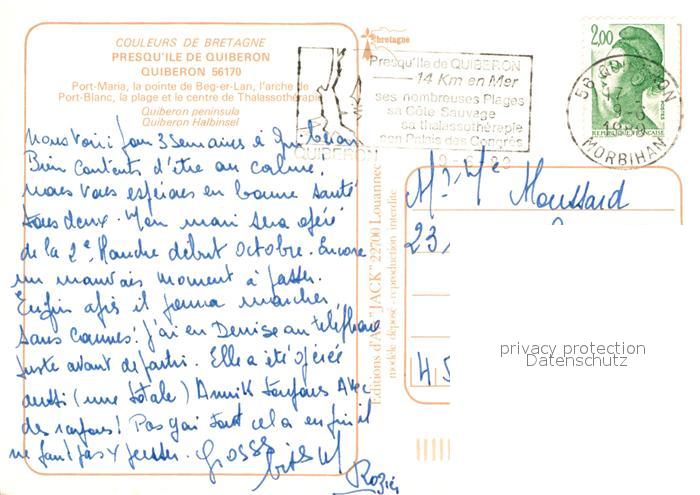 COULEURS DE BRETAGNE
PRESQU'ILE DE QUIBERON
QUIBERON 56170
Port-Maria, la pointe de Beg-er-Lan, l'arche de
Port-Blanc, la plage et le centre de Thalassothérapie
Quiberon peninsula
Quiberon Halbinsel
Nous voici pour 3 semaines à Quiberon
Bien contents d'être au calme.
Nous vous espérons en bonne santé
tous deux. Mon mari sera opéré
de la 2e Hanche début octobre. Encore
un mauvais moment à passer.
Enfin après il pourra marcher
sans cannes! j'ai eu Denise au téléphone
juste avant de partir. Elle a été opérée
aussi (une totale) Annik toujours avec
des rayons! Pas gai tout cela enfin il
ne faut pas y penser. Grosses
bises
bretagne
Presqu'île de QUIBERON
14 Km en Mer
ses nombreuses Plages
sa Côte Sauvage
sa thalassothérapie
son Palais des Congrès
QUIBERON
2,00
REPUBLIQUE FRANÇAISE
56 QUIBERON
MORBIHAN
Editions d'Art "JACK" 22700 Louannec
modèle déposé - reproduction interdite
Mr Me Moussard
23,
45
privacy protection
Datenschutz